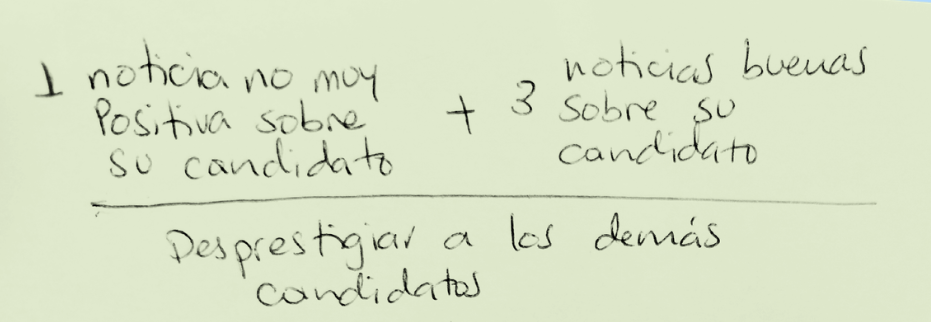 1 noticia no muy
Positiva sobre
su candidato
+ 3 noticias buenas
sobre su
candidato
Desprestigiar a los demás
candidatos